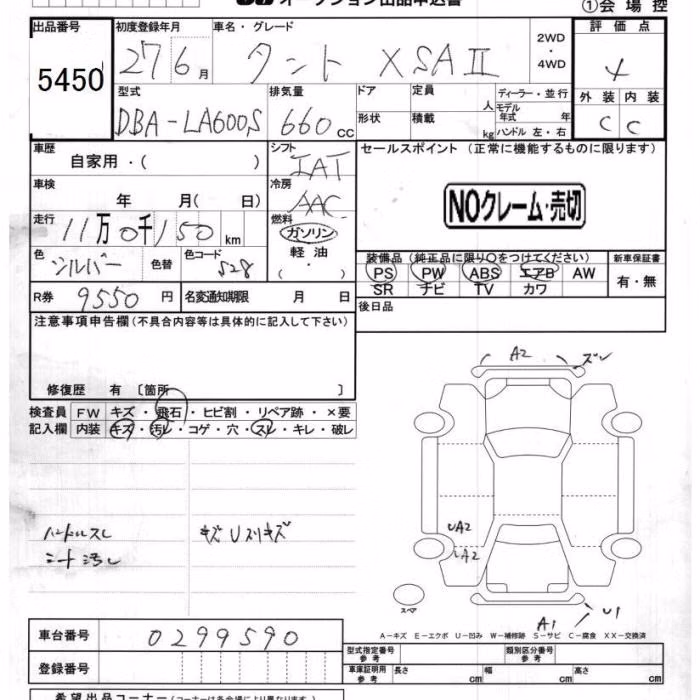 オークション出品申込書
①会場控
出品番号
5450
初度登録年月
27 6月
車名・グレード
タント XSAⅡ
2WD・4WD
評価点
外装 内装
C C
型式
DBA-LA600S
排気量
660cc
ドア
形状
定員 人
積載 kg
ディーラー・並行
モデル年式 年
ハンドル 左・右
車歴
自家用・( )
シフト
IAT
車検
年 月( 日)
冷房
AAC
走行
11万0千150km
燃料
ガソリン
軽油
( ・ )
色
シルバー
色替
色コード
S28
R券
9550円
名変通知期限 月 日
セールスポイント(正常に機能するものに限ります)
NOクレーム・売切
装備品(純正品に限り○をつけてください)
新車保証書
PS PW ABS エアB AW
SR ナビ TV カワ
有・無
後日品
注意事項申告欄(不具合内容等は具体的に記入して下さい)
修復歴 有〔箇所 〕
検査員記入欄
FW キズ・飛石・ヒビ割・リペア跡・×要
内装 キズ・汚レ・コゲ・穴・スレ・キレ・破レ
ハンドルスレ
シート汚レ
キズUスリキズ
A2
ズレ
UA2
UA2
スペア
A1
U1
A-キズ E-エクボ U-凹み W-補修跡 S-サビ C-腐食 XX-交換済
車台番号
0299590
登録番号
型式指定番号参考
類別区分番号参考
車庫証明用参考
長さ cm 幅 cm 高さ cm
希望出品コーナー(コーナーは各会場により異なります)